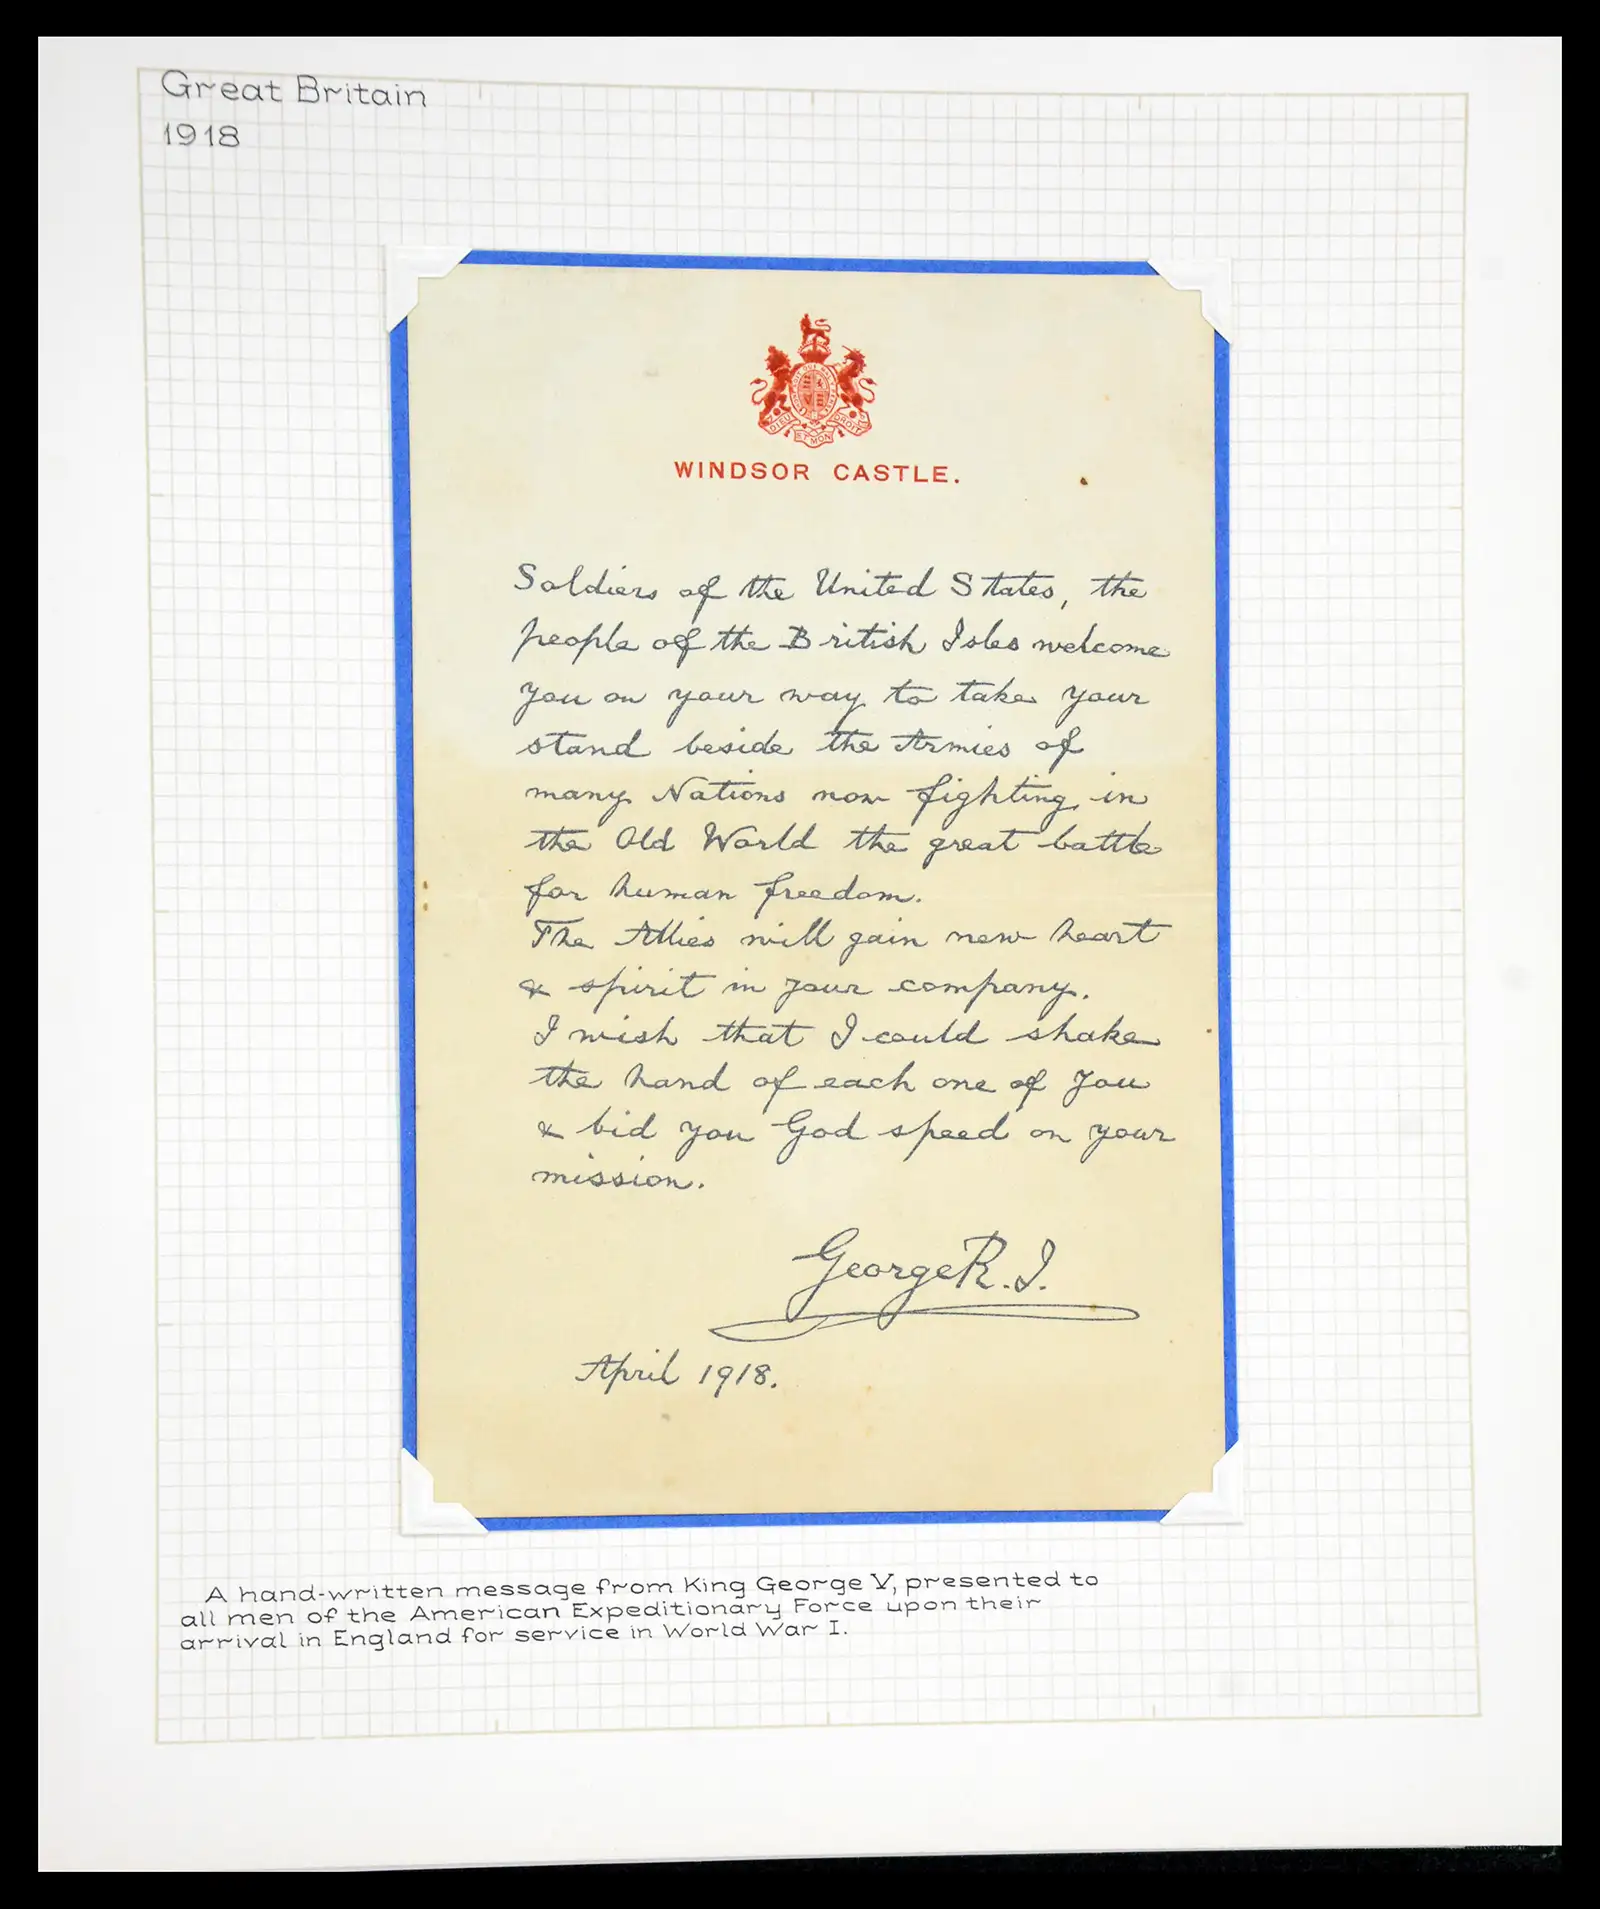 Great Britain
1918
DIEU ET MON DROIT
WINDSOR CASTLE.
Soldiers of the United States, the
people of the British Isles welcome
you on your way to take your
stand beside the Armies of
many Nations now fighting in
the Old World the great battle
for human freedom.
The Allies will gain new heart
& spirit in your company.
I wish that I could shake
the hand of each one of you
& bid you God speed on your
mission.
George R.I.
April 1918.
A hand-written message from King George V, presented to
all men of the American Expeditionary Force upon their
arrival in England for service in World War I.